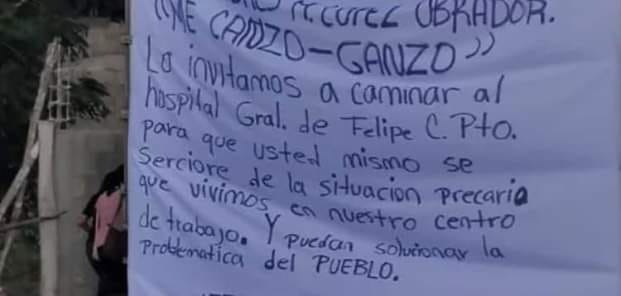 OBRADOR.
"ME CANZO-GANZO"
Lo invitamos a caminar al
hospital Gral. de Felipe C. Pto.
para que usted mismo se
Serciore de la situacion precaria
que vivimos en nuestro centro
de trabajo. Y puedan solucionar la
problematica del PUEBLO.